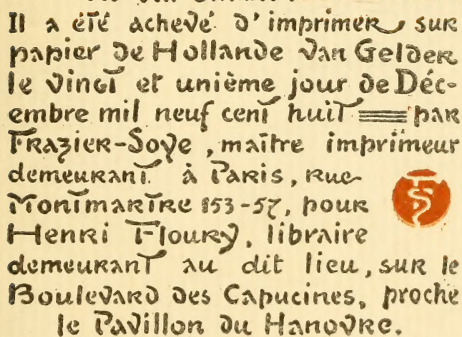 Il a été achevé d'imprimer sur
papier de Hollande Van Gelder
le vingt et unième jour de Déc-
embre mil neuf cent huit par
Frazier-Soye, maître imprimeur
demeurant à Paris, rue
Montmartre 153-57, pour
Henri Floury, libraire
demeurant au dit lieu, sur le
Boulevard des Capucines, proche
le Pavillon du Hanovre.